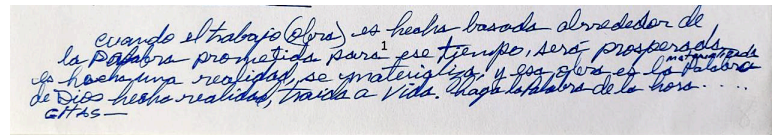 cuando el trabajo (obra) es hecha basada alrededor de
la Palabra prometida para ese tiempo, será prosperada
es hecha una realidad, se materializa, y esa obra es la Palabra materializada
de Dios hecha realidad, traida a Vida. Haga la Palabra de la hora.....
CITAS—